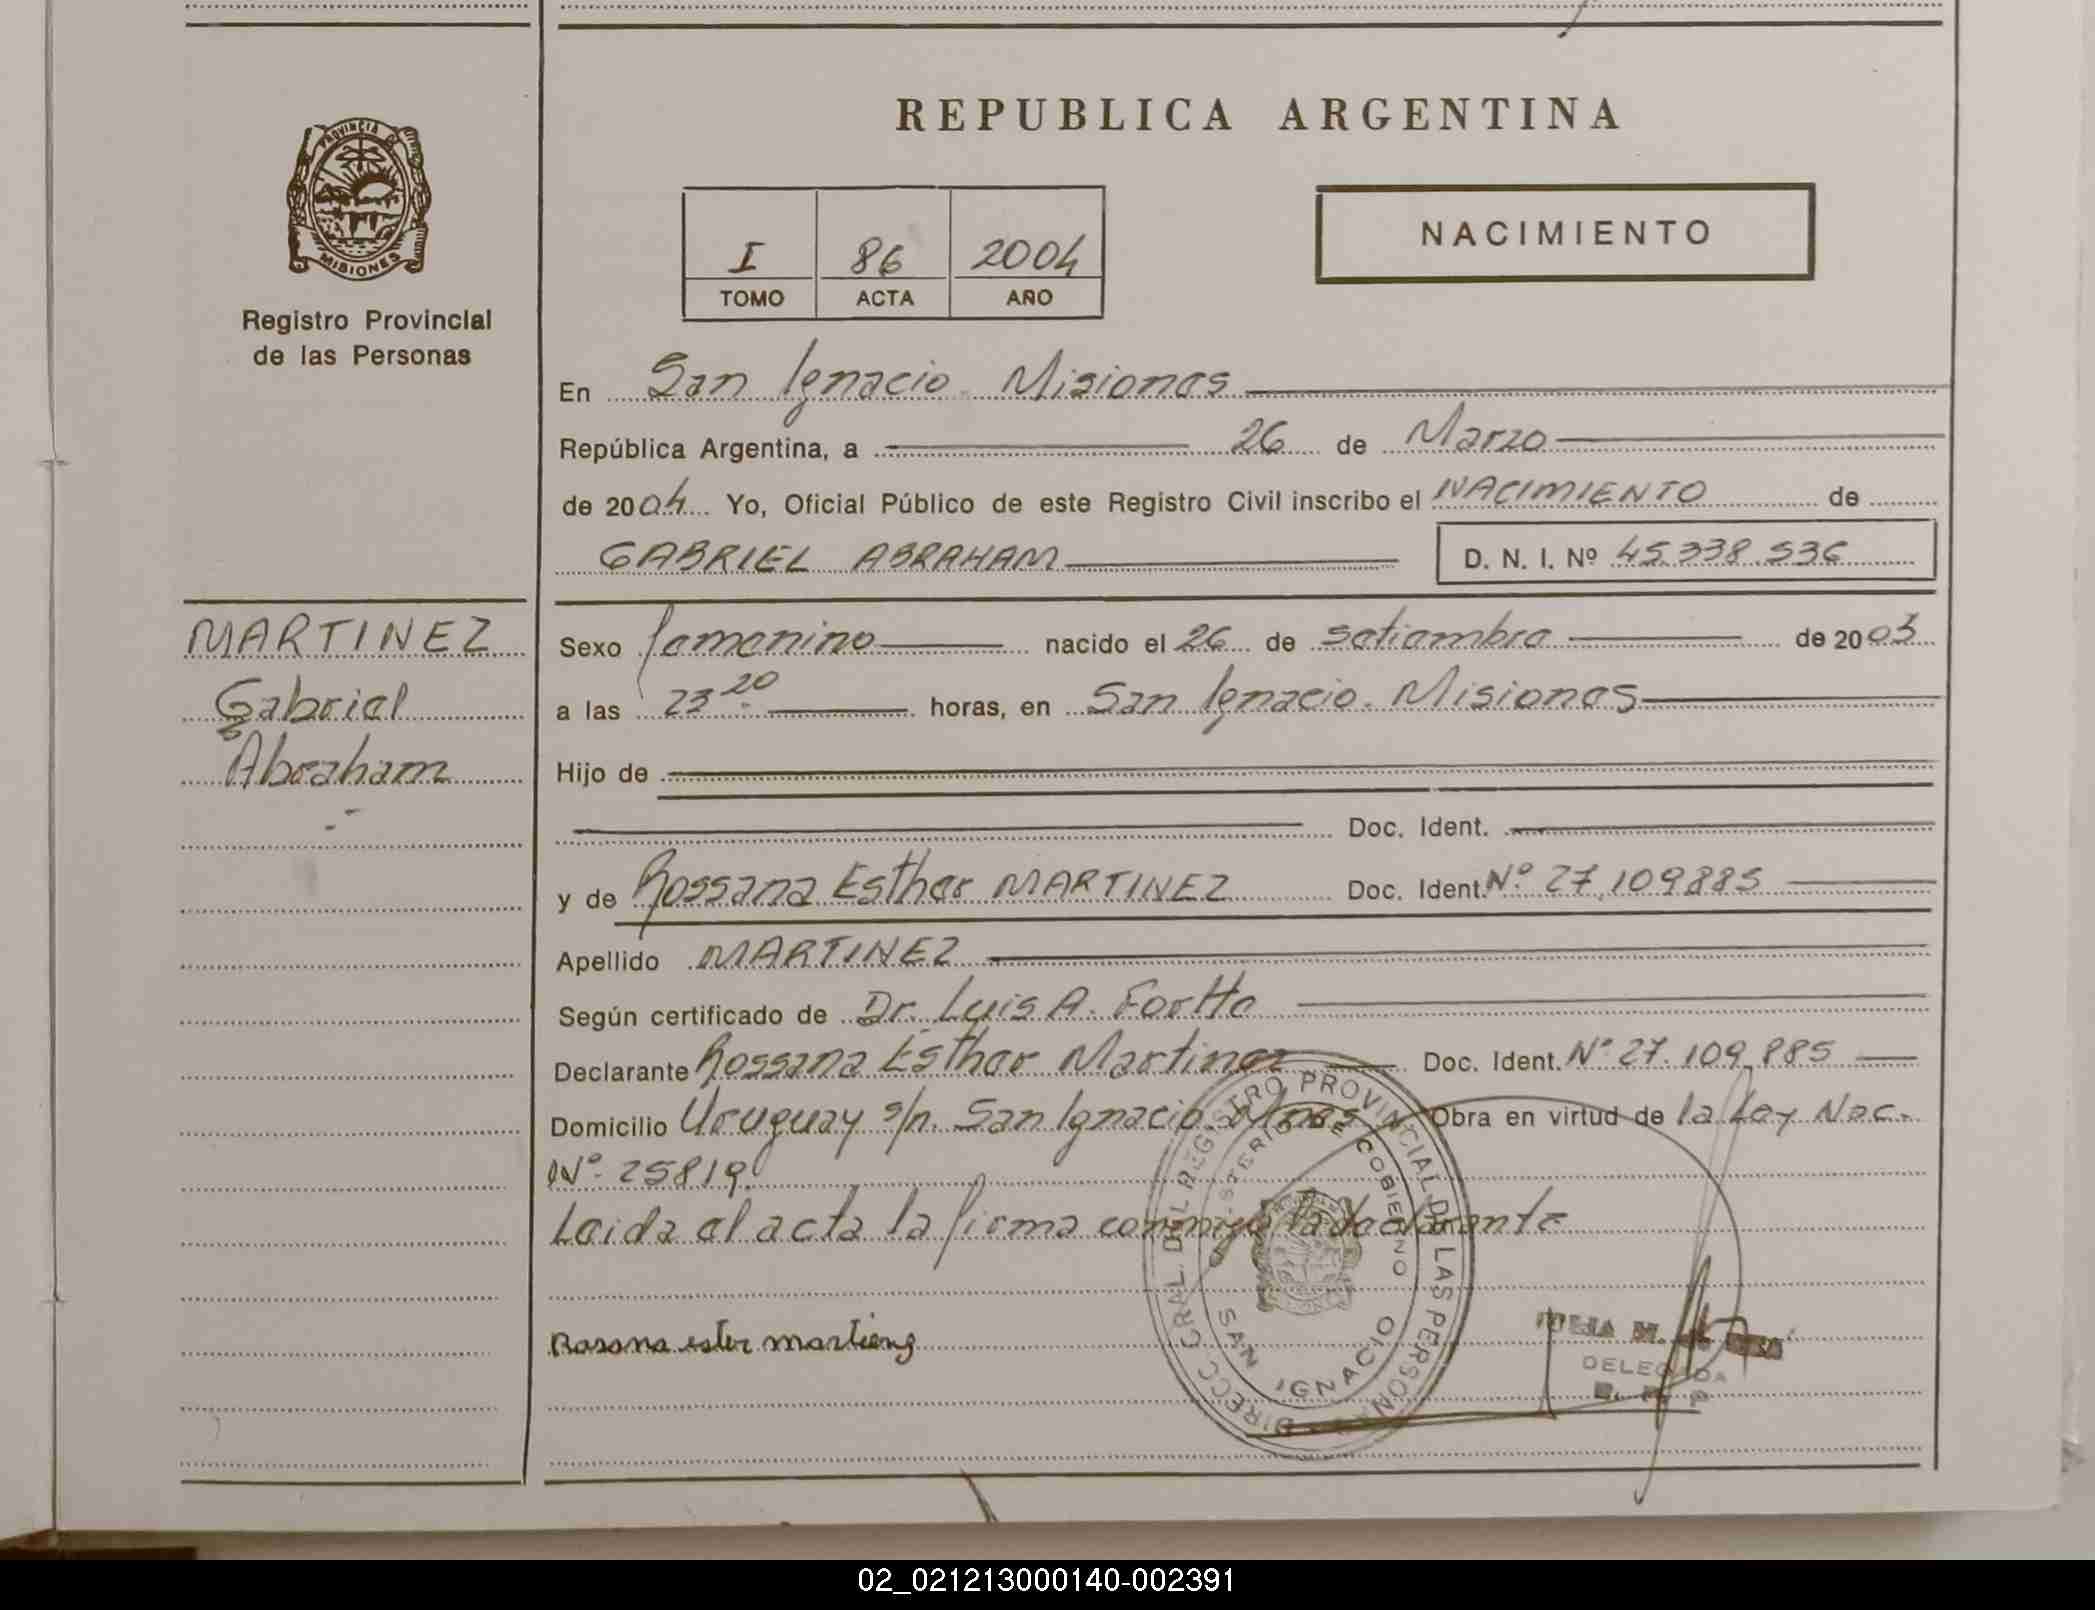 REPUBLICA ARGENTINA
PROVINCIA DE
MISIONES
Registro Provincial
de las Personas
I 86 2004
TOMO ACTA AÑO
NACIMIENTO
En San Ignacio. Misiones
República Argentina, a 26 de Marzo
de 2004 Yo, Oficial Público de este Registro Civil inscribo el NACIMIENTO de
GABRIEL ABRAHAM D. N. I. Nº 45.338.536
MARTINEZ
Gabriel
Abraham
Sexo femenino nacido el 26 de setiembre de 2003
a las 23 20 horas, en San Ignacio. Misiones
Hijo de
Doc. Ident.
y de Rossana Esther MARTINEZ Doc. Ident. Nº 27.109885
Apellido MARTINEZ
Según certificado de Dr. Luis A.
Declarante Rossana Esther Martinez Doc. Ident. Nº 27.109.885
Domicilio Uruguay s/n. San Ignacio. Mnes Obra en virtud de la Ley Nac.
Nº 25819.
Leida el acta la firma conmigo la declarante
Rosana ester martieng
DIRECC. GRAL. DEL REGISTRO PROVINCIAL DE LAS PERSONAS
MINISTERIO DE GOBIERNO
SAN IGNACIO
DELEGADA
R. P. P
02_021213000140-002391